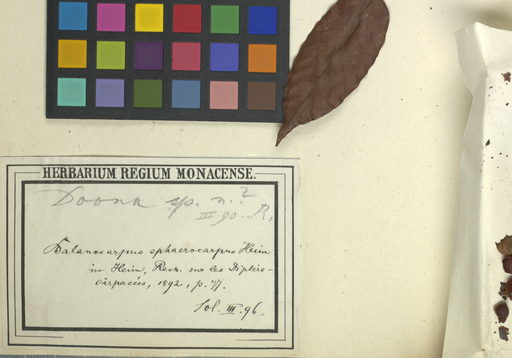 HERBARIUM REGIUM MONACENSE.
Doona sp. n.?
III 90. R.
Balanocarpus sphaerocarpus Heim
in Heim, Rech. sur les Diptéro-
carpacées, 1892, p. 77.
Sol. III. 96.